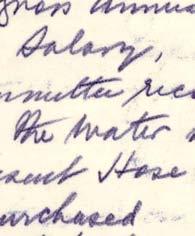 gross annual
Salary,
mmittee reco
the water
esent Hose
urchased